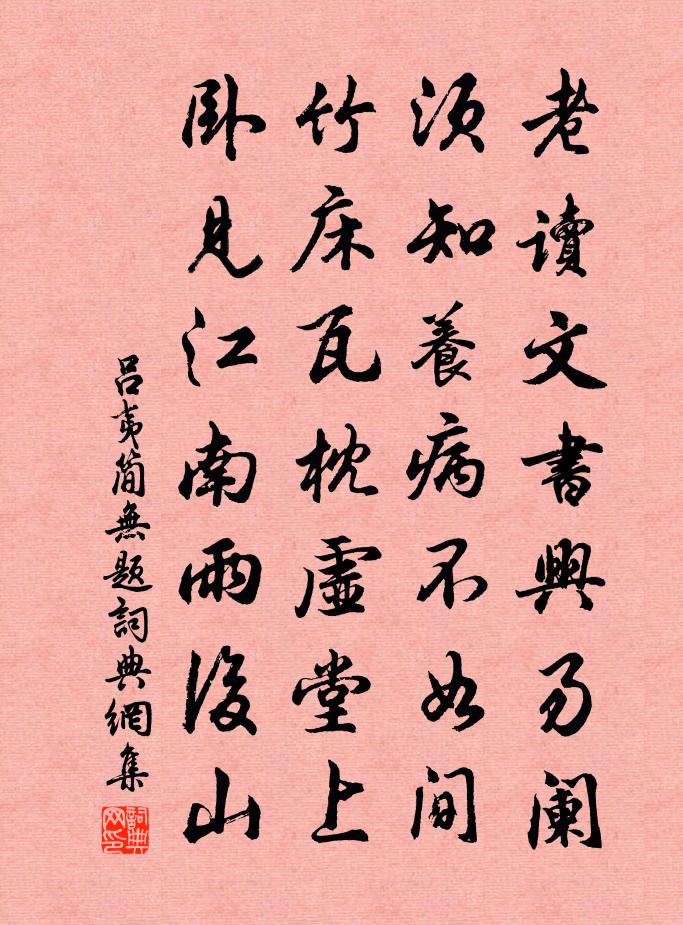 老讀文書興易闌
須知養病不如閒
竹床瓦枕虛堂上
卧見江南雨後山
吕夷簡無題詞典網集
詞典网印